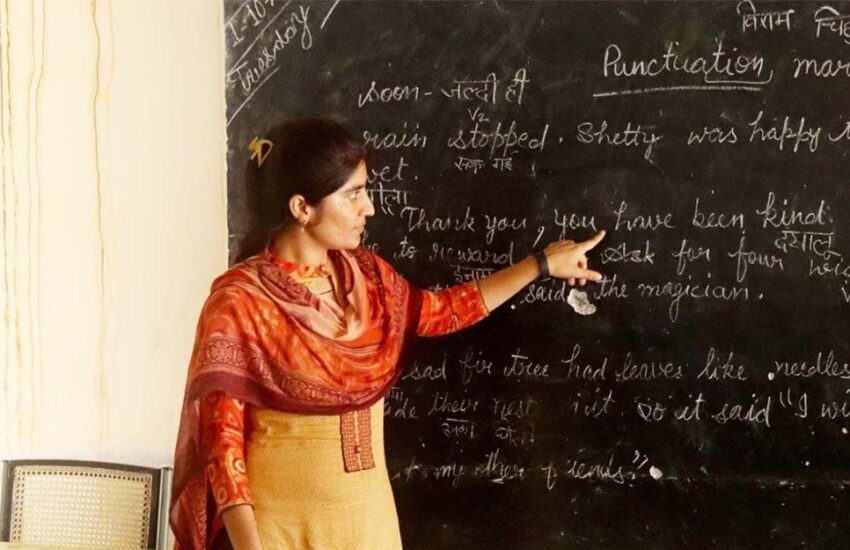 Tuesday
विराम चिह्
Punctuation mar
soon - जल्दी ही
V2
rain stopped. Shetty was happy t
रुक गई
wet.
गीला
"Thank you, you have been kind.
दयालु
to reward for four wis
ईनाम
said the magician.
sad fir tree had leaves like needles
their nest it. So it said "I wi
उनका
my other friends."